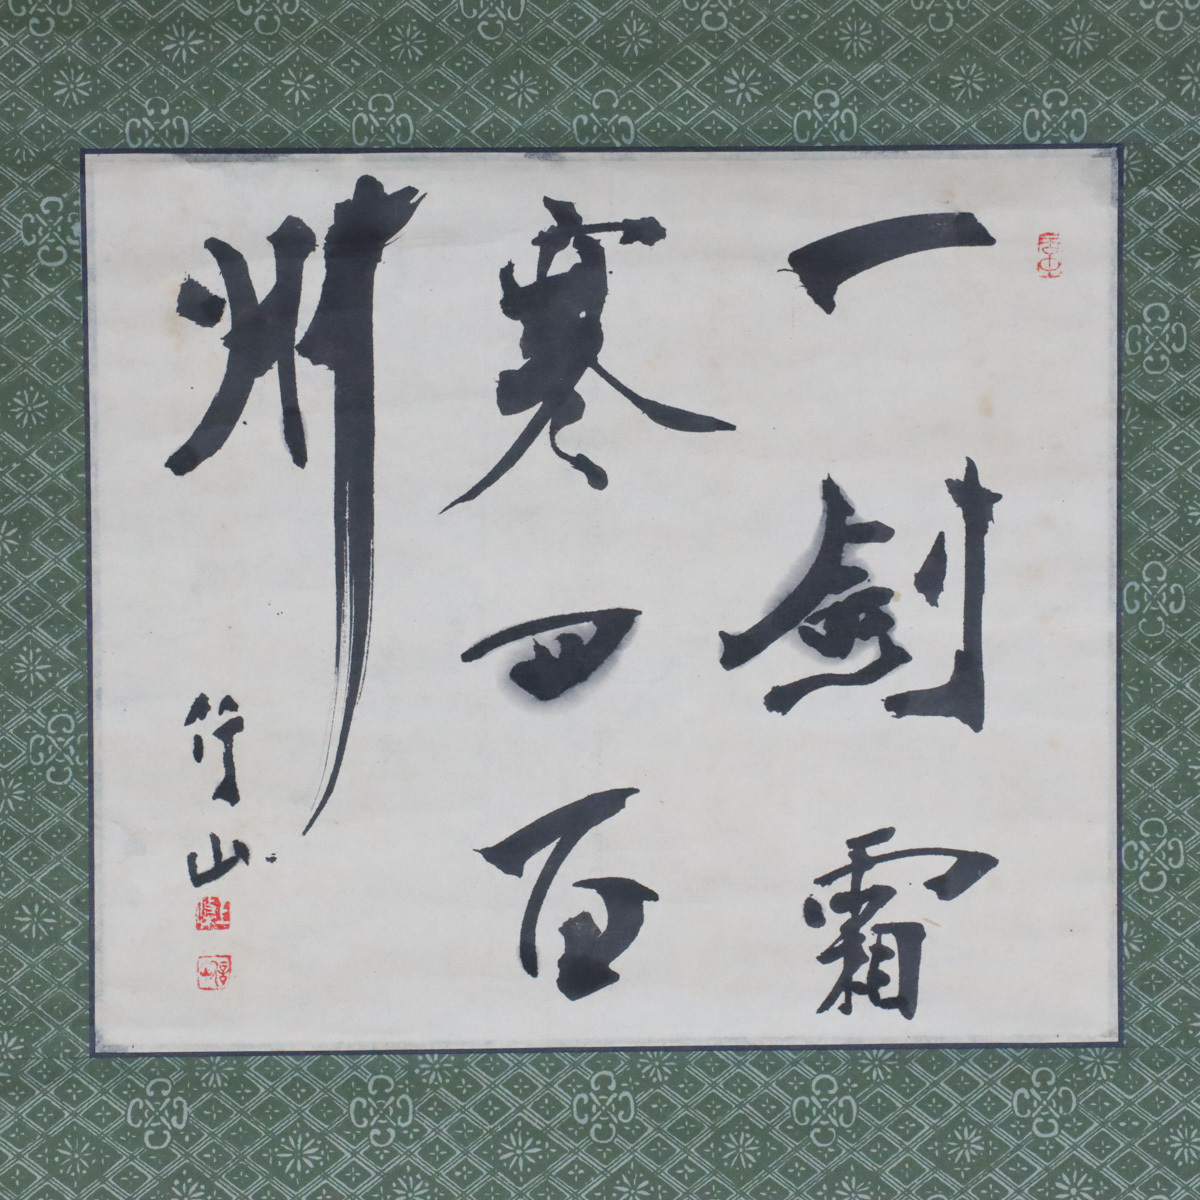 一劍霜
寒四百
州
山